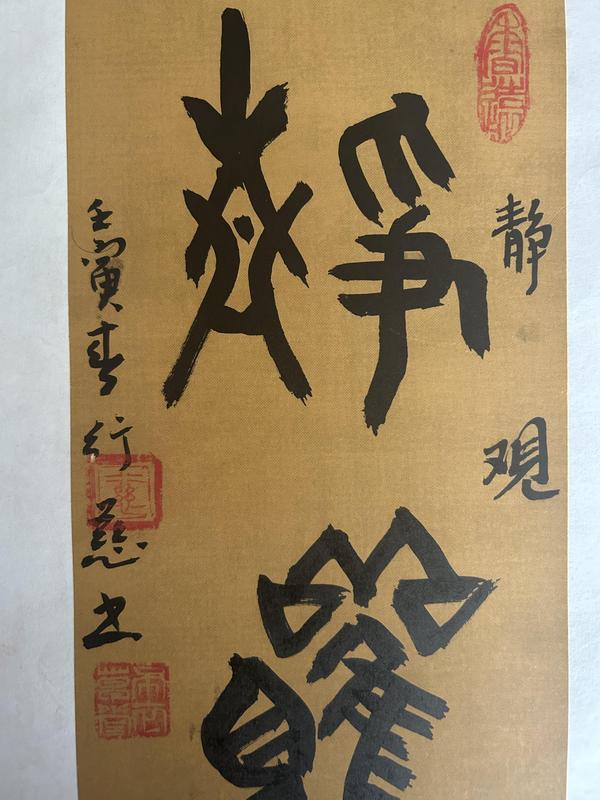 静观
靜觀
壬寅春行慈书